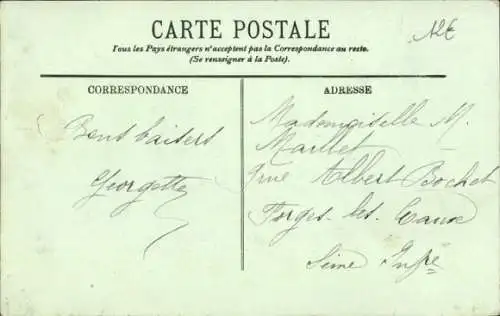 CARTE POSTALE
12€
Tous les Pays étrangers n'acceptent pas la Correspondance au recto.
(Se renseigner à la Poste).
CORRESPONDANCE
ADRESSE
Bons baisers
Georgette
Mademoiselle M.
Maillet
rue Albert Bochet
Forges-les-Eaux
Seine Infre